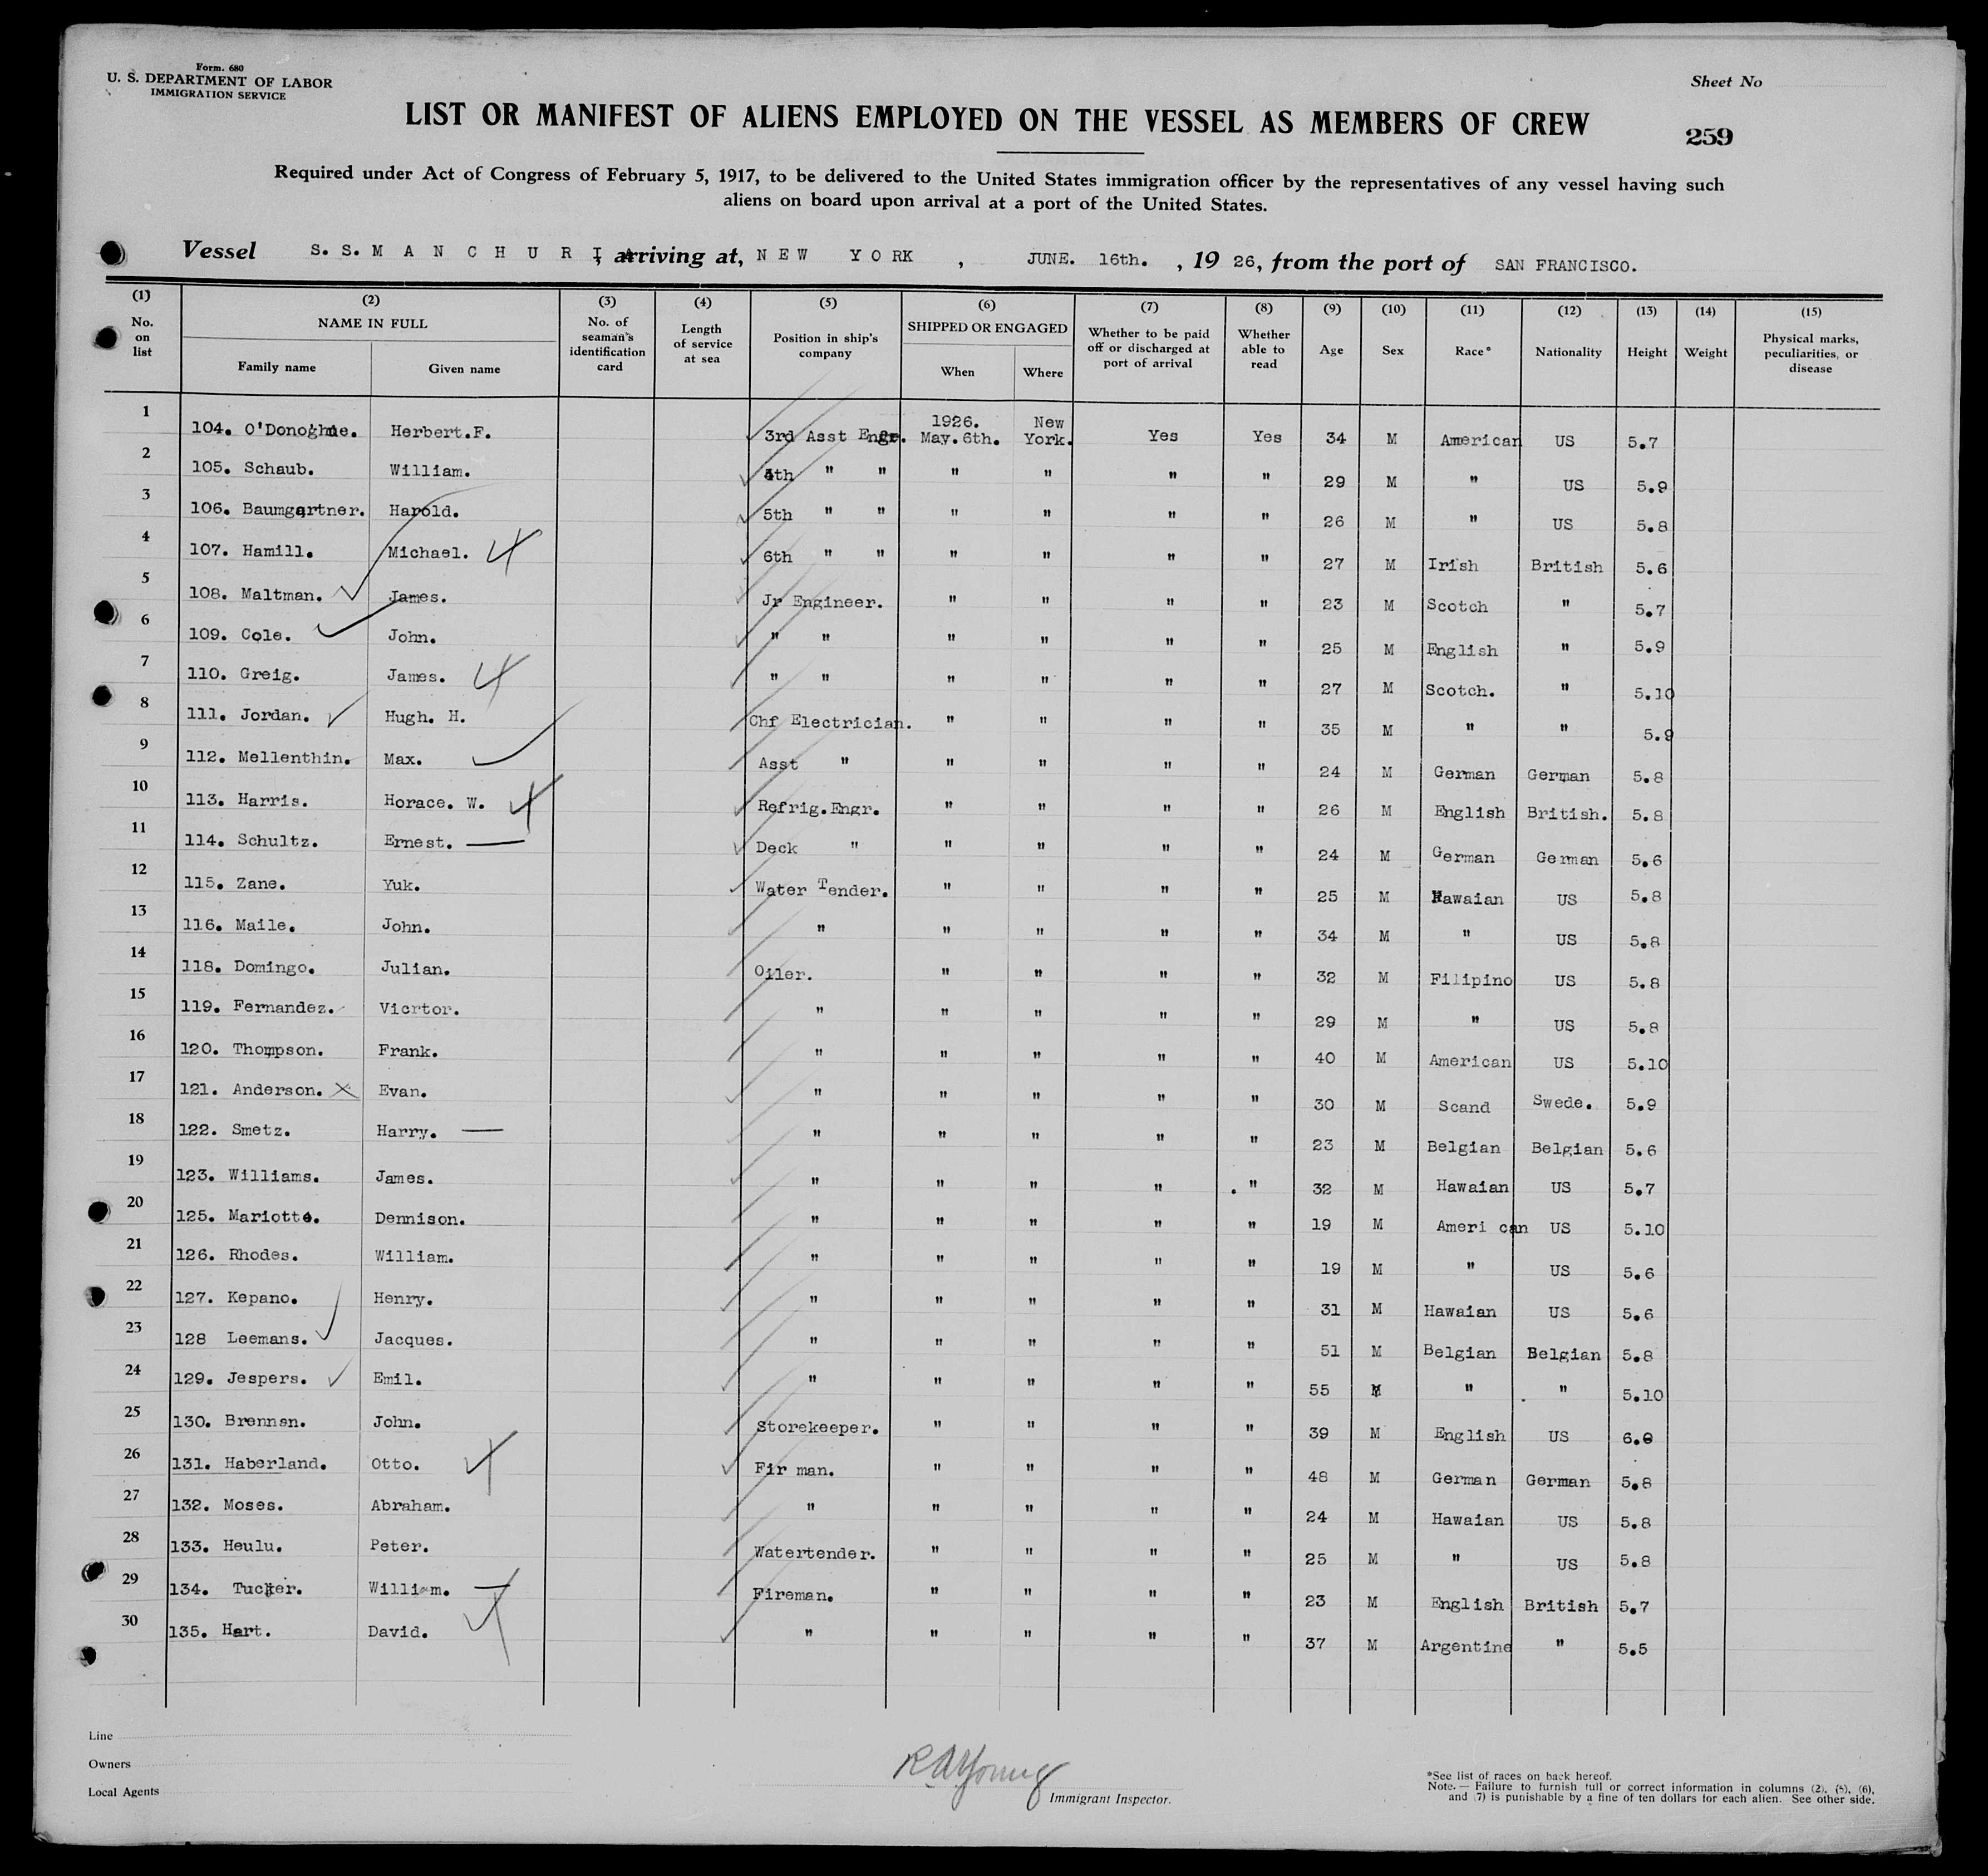 Form. 680
U. S. DEPARTMENT OF LABOR
IMMIGRATION SERVICE
Sheet No
LIST OR MANIFEST OF ALIENS EMPLOYED ON THE VESSEL AS MEMBERS OF CREW
259
Required under Act of Congress of February 5, 1917, to be delivered to the United States immigration officer by the representatives of any vessel having such
aliens on board upon arrival at a port of the United States.
Vessel S. S. M A N C H U R I A, arriving at, N E W Y O R K , JUNE. 16th. , 19 26, from the port of SAN FRANCISCO.
(1) (2) (3) (4) (5) (6) (7) (8) (9) (10) (11) (12) (13) (14) (15)
No. on list NAME IN FULL Family name Given name No. of seaman's identification card Length of service at sea Position in ship's company SHIPPED OR ENGAGED When Where Whether to be paid off or discharged at port of arrival Whether able to read Age Sex Race* Nationality Height Weight Physical marks, peculiarities, or disease
1 104. O'Donoghue. Herbert.F. 3rd Asst Engr. 1926. May.6th. New York. Yes Yes 34 M American US 5.7
2 105. Schaub. William. 4th " " " " " " 29 M " US 5.9
3 106. Baumgartner. Harold. 5th " " " " " " 26 M " US 5.8
4 107. Hamill. Michael. 6th " " " " " " 27 M Irish British 5.6
5 108. Maltman. James. Jr Engineer. " " " " 23 M Scotch " 5.7
6 109. Cole. John. " " " " " " 25 M English " 5.9
7 110. Greig. James. " " " " " " 27 M Scotch. " 5.10
8 111. Jordan. Hugh. H. Chf Electrician. " " " " 35 M " " 5.9
9 112. Mellenthin. Max. Asst " " " " " 24 M German German 5.8
10 113. Harris. Horace. W. Refrig.Engr. " " " " 26 M English British. 5.8
11 114. Schultz. Ernest. Deck " " " " " 24 M German German 5.6
12 115. Zane. Yuk. Water Tender. " " " " 25 M Hawaian US 5.8
13 116. Maile. John. " " " " " 34 M " US 5.8
14 118. Domingo. Julian. Oiler. " " " " 32 M Filipino US 5.8
15 119. Fernandez. Vicrtor. " " " " " 29 M " US 5.8
16 120. Thompson. Frank. " " " " " 40 M American US 5.10
17 121. Anderson. Evan. " " " " " 30 M Scand Swede. 5.9
18 122. Smetz. Harry. " " " " " 23 M Belgian Belgian 5.6
19 123. Williams. James. " " " " " 32 M Hawaian US 5.7
20 125. Mariotte. Dennison. " " " " " 19 M Ameri can US 5.10
21 126. Rhodes. William. " " " " " 19 M " US 5.6
22 127. Kepano. Henry. " " " " " 31 M Hawaian US 5.6
23 128 Leemans. Jacques. " " " " " 51 M Belgian Belgian 5.8
24 129. Jespers. Emil. " " " " " 55 M " " 5.10
25 130. Brennan. John. Storekeeper. " " " " 39 M English US 6.0
26 131. Haberland. Otto. Fir man. " " " " 48 M German German 5.8
27 132. Moses. Abraham. " " " " " 24 M Hawaian US 5.8
28 133. Heulu. Peter. Watertender. " " " " 25 M " US 5.8
29 134. Tucker. William. Fireman. " " " " 23 M English British 5.7
30 135. Hart. David. " " " " " 37 M Argentine " 5.5
Line
Owners
Local Agents
R A Young
Immigrant Inspector.
*See list of races on back hereof.
Note. — Failure to furnish full or correct information in columns (2), (5), (6),
and (7) is punishable by a fine of ten dollars for each alien. See other side.